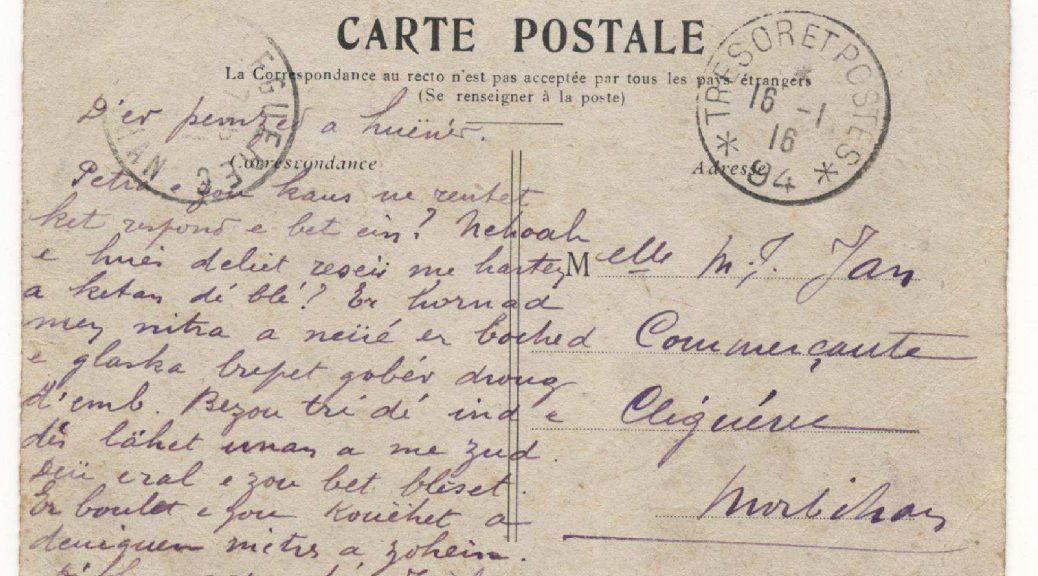 CARTE POSTALE
La Correspondance au recto n'est pas acceptée par tous les pays étrangers
(Se renseigner à la poste)
TRESOR ET POSTES
16 -1
16
94
D'er
a huënér.
Correspondance
Adresse
Petra e zou kaus ne rentet
ket respond e bet ein? Nehoah
e hués deliet reseü me harteu
a ketan dé blé? Er kornad
men nitra a neüé er boched
e glaska brepet gobér droug
d'emb. Bezou tri dé ind e
dès lähet unan a me zud
deü eral e zou bet bleset.
Er boulet e zou kouéhet a
metr a
Melle M. J. Jan
Commerçante
Cléguérec
Morbihan